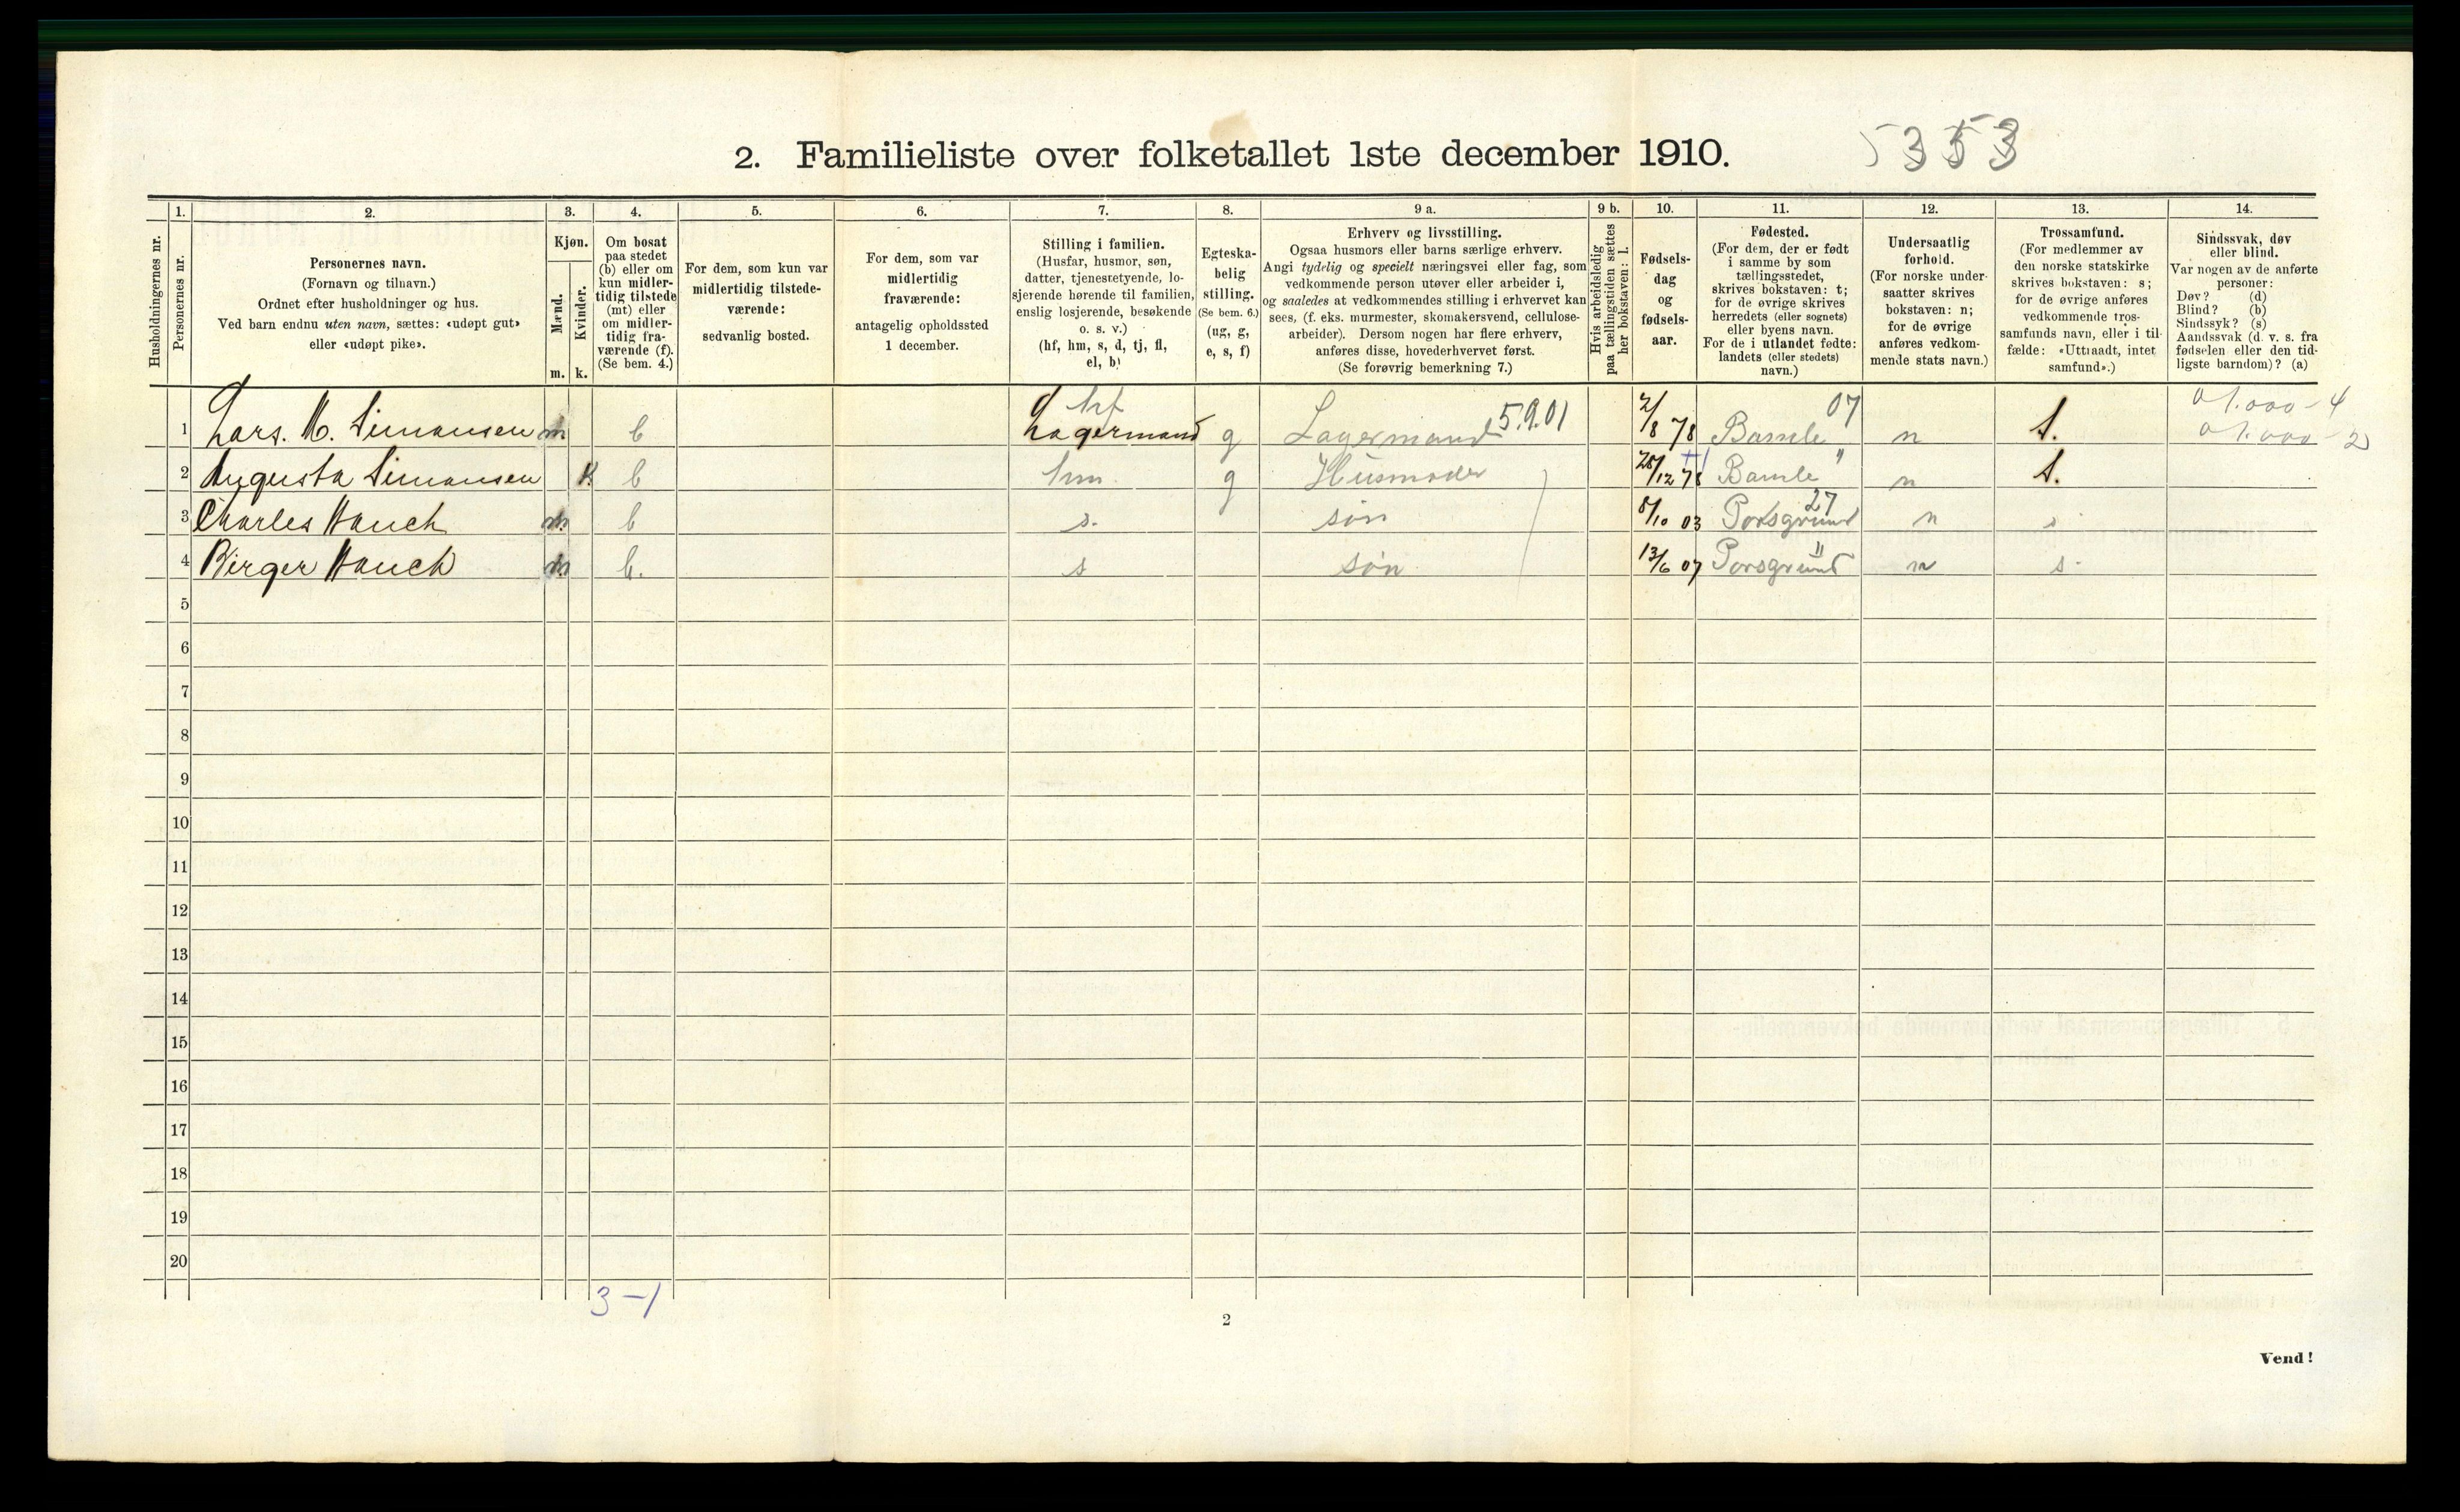 2. Familieliste over folketallet 1ste december 1910.
5353
Husholdningernes nr.
1.
Personernes nr.
2.
Personernes navn.
(Fornavn og tilnavn.)
Ordnet efter husholdninger og hus.
Ved barn endnu uten navn, sættes: «udøpt gut»
eller «udøpt pike».
3.
Kjøn.
Mænd.
Kvinder.
m. k.
4.
Om bosat
paa stedet
(b) eller om
kun midler-
tidig tilstede
(mt) eller
om midler-
tidig fra-
værende (f).
(Se bem. 4.)
5.
For dem, som kun var
midlertidig tilstede-
værende:
sedvanlig bosted.
6.
For dem, som var
midlertidig
fraværende:
antagelig opholdssted
1 december.
7.
Stilling i familien.
(Husfar, husmor, søn,
datter, tjenestetyende, lo-
sjerende hørende til familien,
enslig losjerende, besøkende
o. s. v.)
(hf, hm, s, d, tj, fl,
el, b)
8.
Egteska-
belig
stilling.
(Se bem. 6.)
(ug, g,
e, s, f)
9 a.
Erhverv og livsstilling.
Ogsaa husmors eller barns særlige erhverv.
Angi tydelig og specielt næringsvei eller fag, som
vedkommende person utøver eller arbeider i,
og saaledes at vedkommendes stilling i erhvervet kan
sees, (f. eks. murmester, skomakersvend, cellulose-
arbeider). Dersom nogen har flere erhverv,
anføres disse, hovederhvervet først.
(Se forøvrig bemerkning 7.)
9 b.
Hvis arbeidsledig
paa tællingstiden sættes
her bokstaven: l.
10.
Fødsels-
dag
og
fødsels-
aar.
11.
Fødested.
(For dem, der er født
i samme by som
tællingsstedet,
skrives bokstaven: t;
for de øvrige skrives
herredets (eller sognets)
eller byens navn.
For de i utlandet fødte:
landets (eller stedets)
navn.)
12.
Undersaatlig
forhold.
(For norske under-
saatter skrives
bokstaven: n;
for de øvrige
anføres vedkom-
mende stats navn.)
13.
Trossamfund.
(For medlemmer av
den norske statskirke
skrives bokstaven: s;
for de øvrige anføres
vedkommende tros-
samfunds navn, eller i til-
fælde: «Uttraadt, intet
samfund».)
14.
Sindssvak, døv
eller blind.
Var nogen av de anførte
personer:
Døv? (d)
Blind? (b)
Sindssyk? (s)
Aandssvak (d. v. s. fra
fødselen eller den tid-
ligste barndom)? (a)
hf 5.9.01 07 01.000-4
1 Lars. M. Simonsen m b Lagermand g Lagermand 2/8 78 Bamle n S. 01.000-2
2 Augusta Simonsen k b hm. g Husmoder 28/12 78 Bamle " n S.
27
3 Charles Hauch m b s. søn 8/10 03 Porsgrund n s
4 Birger Hauch m b. s søn 13/6 07 Porsgrund " n s.
5
6
7
8
9
10
11
12
13
14
15
16
17
18
19
20
3-1
2
Vend!